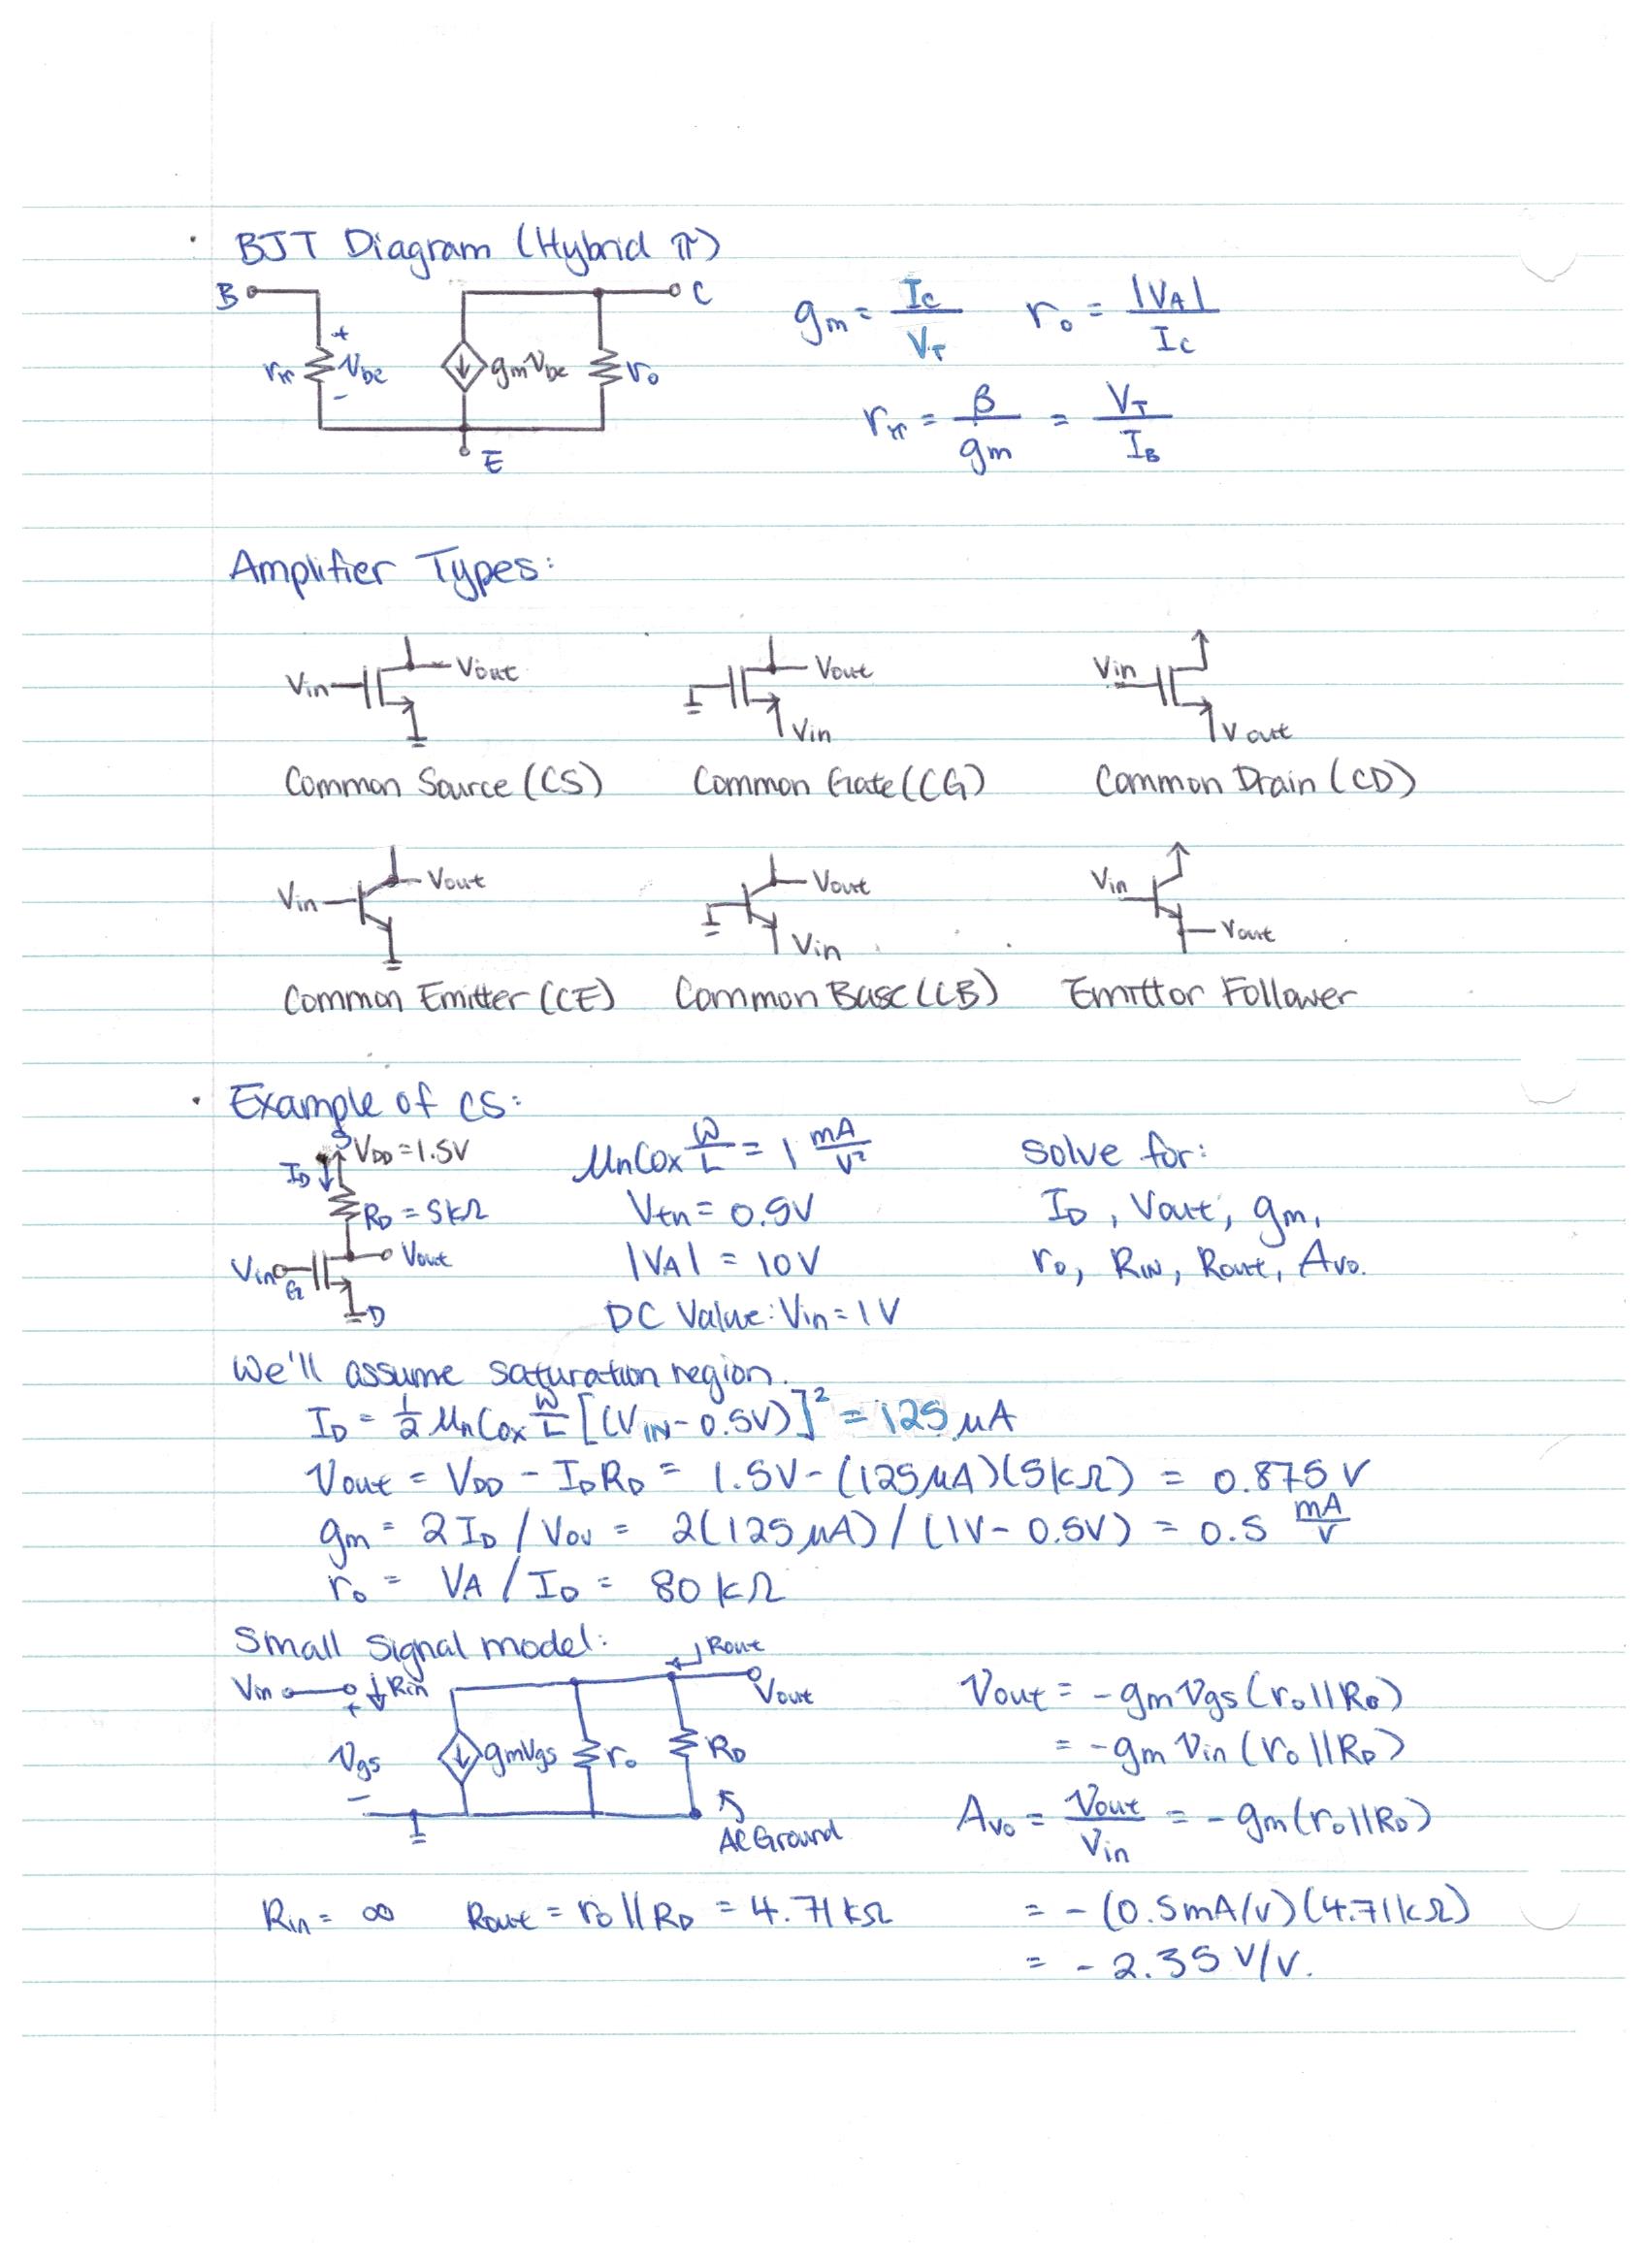 BJT Diagram (Hybrid π)
B
C
+
rπ
vbe
-
gmvbe
ro
E
gm = Ic / VT
ro = |VA| / Ic
rπ = β / gm = VT / IB
Amplifier Types:
Vin Vout
Vout Vin
Vin Vout
Common Source (CS) Common Gate (CG) Common Drain (CD)
Vin Vout
Vout Vin
Vin Vout
Common Emitter (CE) Common Base (CB) Emittor Follower
Example of CS:
VDD = 1.5V
ID
RD = 5kΩ
Vout
Vin
G
D
S
μnCox W/L = 1 mA/V²
Vtn = 0.5V
|VA| = 10V
DC Value: Vin = 1V
Solve for:
ID, Vout, gm,
ro, RIN, Rout, Avo.
We'll assume saturation region.
ID = 1/2 μnCox W/L [(VIN - 0.5V)]² = 125 μA
Vout = VDD - IDRD = 1.5V - (125μA)(5kΩ) = 0.875V
gm = 2ID / Vov = 2(125μA) / (1V - 0.5V) = 0.5 mA/V
ro = VA / ID = 80kΩ
Small Signal model:
Vin
Rin
Rout
Vout
+
vgs
-
gmvgs
ro
RD
AC Ground
Vout = -gmvgs(ro||RD)
= -gmvin(ro||RD)
Avo = Vout / Vin = -gm(ro||RD)
Rin = ∞ Rout = ro||RD = 4.71kΩ
= -(0.5mA/V)(4.71kΩ)
= -2.35 V/V.